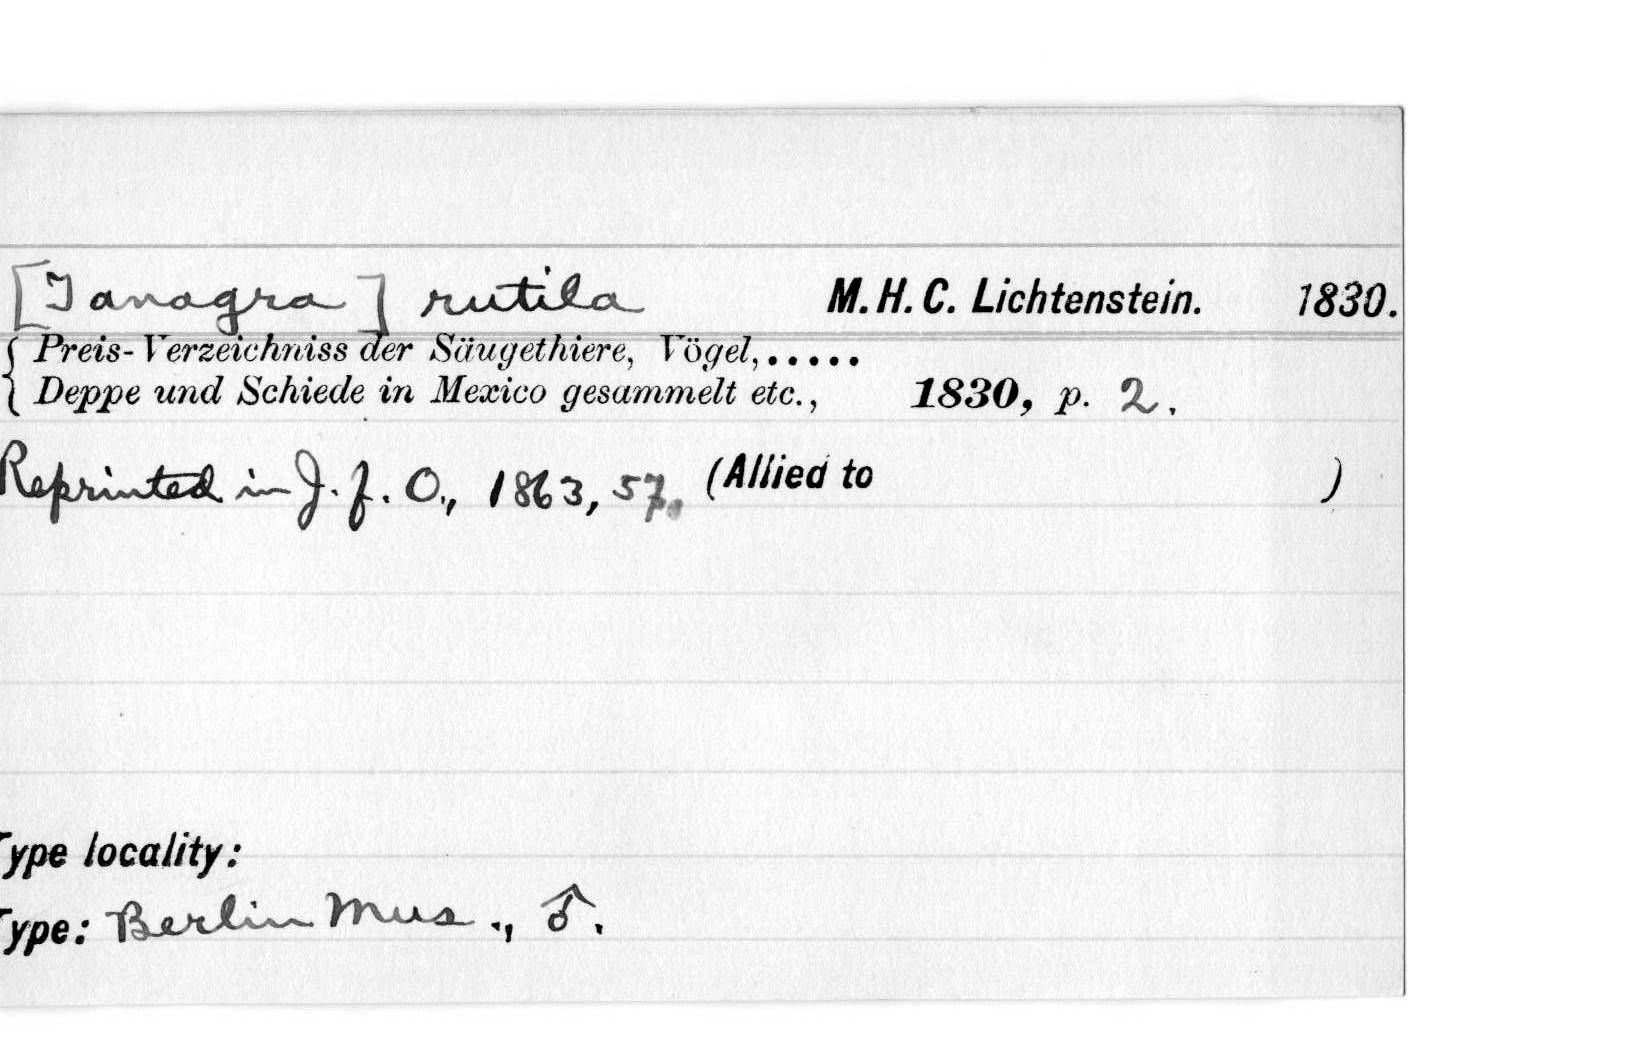 [Tanagra] rutila M. H. C. Lichtenstein. 1830.
Preis-Verzeichniss der Säugethiere, Vögel,.....
Deppe und Schiede in Mexico gesammelt etc., 1830, p. 2.
Reprinted in J. f. O., 1863, 57. (Allied to )
Type locality:
Type: Berlin Mus., ♂.